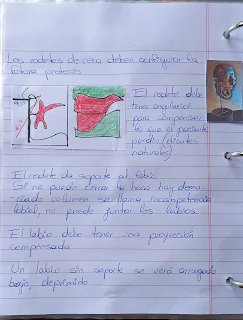 Los rodetes de cera deben configurar la
futura protesis
El rodete debe
tener angulacion
para compensar
lo que el paciente
perdio (dientes
naturales)
El rodete da soporte al labio
Si no puede cerrar la boca hay dema-
ciado volumen se llama incompetencia
labial, no puede juntar los labios.
El labio debe tener una proyección
compensada
Un labio sin soporte se verá arrugado
bajo, deprimido